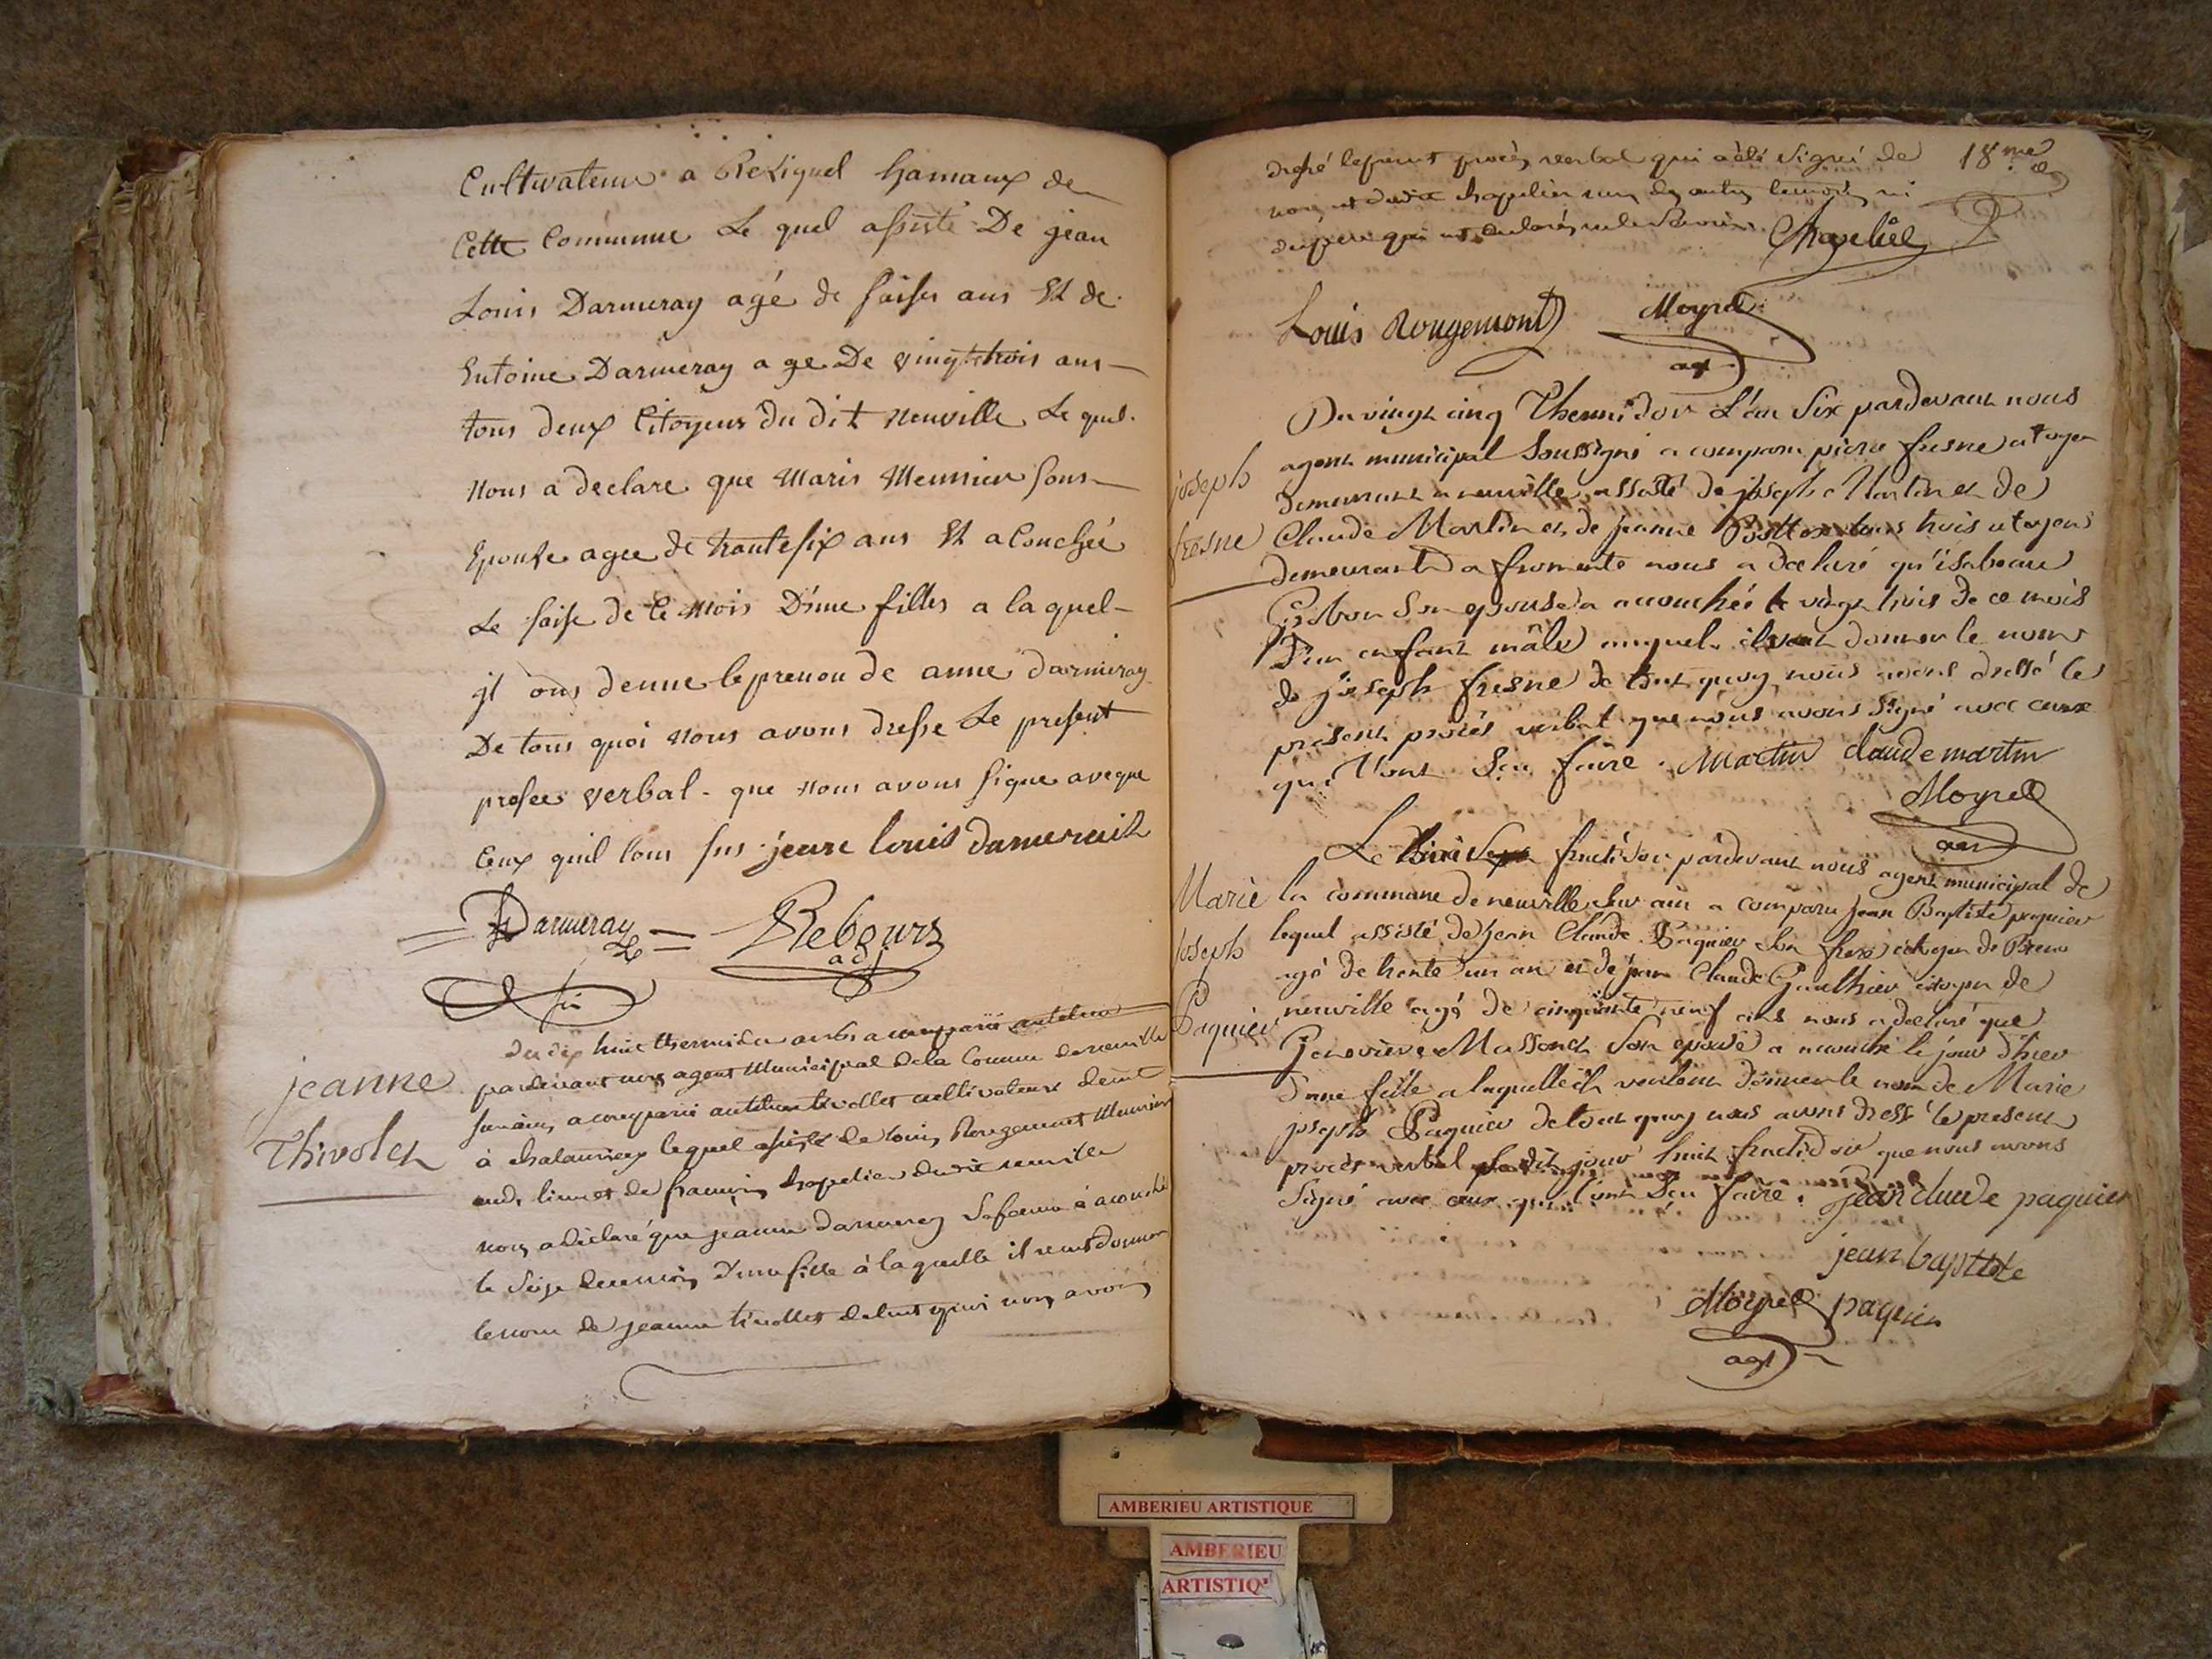 Cultivateur a Reliquel hamaux de
Cette Commune Le quel assisté De jean
Louis Darmeray agé de saise ans Et de
Entoine Darmeray a ge De vingt trois ans
tous deux Citoyens du dit neuville Le quel
Nous a declare que Marie Meunier sons
Epouse agee de trante six ans Et a Couchée
Le saise de Ce Mois D'une filles a laquel
jl ons denne le prenon de anne darmeray
De tous quoi Nous avons dresse Le present
prosee verbal que nous avons signe aveque
Ceux quil lons sus jeans louis dameraiit
Darmeray Rebours
adj
jeanne
Thivolet
du dix huit thermidor an 6 a comparu antelme
pardevant nous agent Municipal de la Commune de neuville
sur ain, a comparu antelme tivollet cultivateur demt
à chalamieux lequel assisté de Louis Rougemont Meunier
aud. lieu et de françois chapelier dudit neuville
nous a déclaré que jeanne darmeray sa femme à acouché
le seize du mois d'une fille à laquelle il veut donner
le nom de jeanne tivollet de tout quoi nous avons
dressé le present procès verbal qui a été signé de 18me
nous et dudit chapelier un des autres temoins ni
du pere qui ont declarés ne le savoir. Chapelié
Louis Rougemont Moyret
agt
joseph
fresne
Du vingt cinq Thermidor L'an Six pardevant nous
agent municipal Soussigné a comparu pierre fresne citoyen
demeurant a neuville assisté de joseph Martin et de
Claude Martin et de jeanne tous trois citoyens
demeurant a fromente nous a declaré qu'isabeau
son epouse a accouchée le vingt trois de ce mois
D'un enfant mâle auquel ils vont donner le nom
de joseph fresne de tout quoy nous avons dressé le
present procès verbal que nous avons signé avec ceux
qui l'ont Sçu faire. Martin claude martin
Moyret
agt
Marie
joseph
Paquier
Le fructidor pardevant nous agent municipal de
la commune de neuville sur ain a comparu jean Baptiste paquier
lequel assisté de jean Claude Paquier son frere citoyen de
agé de trente un an et de jean Claude Gauthier citoyen de
neuville agé de cinquante neuf ans nous a declaré que
Genevieve Massonet son epouse a accouché le jour d'hier
d'une fille a laquelle ils veulent donner le nom de Marie
joseph Paquier de tout quoy nous avons dressé le present
procès verbal ledit jour huit fructidor que nous avons
Signé avec ceux qui l'ont Sçu faire. jean claude paquier
jean baptiste
Moyret paquier
agt
AMBERIEU ARTISTIQUE
AMBERIEU
ARTISTIQ